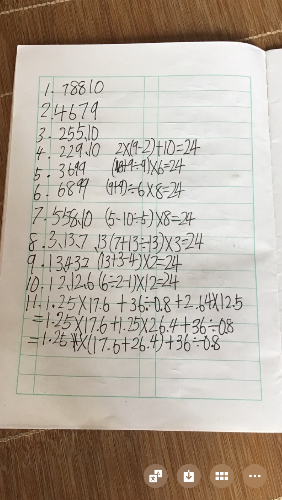 1. 78810
2. 4679
3. 255.10
4. 229.10 2×(9-2)+10=24
5. 3699 ÷9)×6=24
6. 6899 (9+9)÷6×8=24
7. 558.10 (5-10÷5)×8=24
8. 3.13.7 .13 (7+13÷13)×3=24
9. (13+3-4)×2=24
10. 1 2.12.6 (6÷2-1)×12=24
11. 1.25×17.6 +36÷0.8+2.64×12.5
=1.25×17.6+1.25×26.4+36÷0.8
=1.25×(17.6+26.4)+36÷0.8